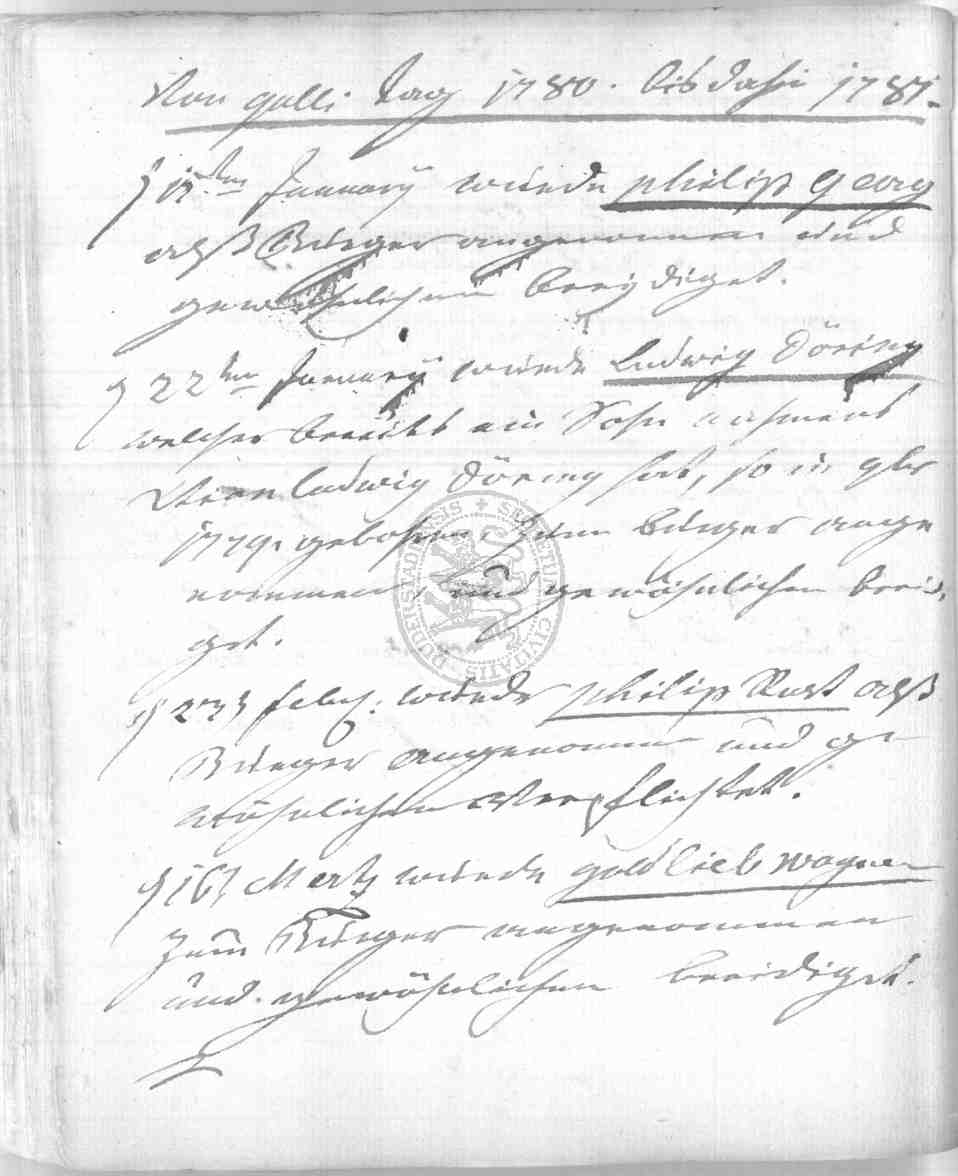 Von galli tag 1780. bis dahin 1781.
d 15ten January wurde philip georg
alß Bürger angenommen und
gewöhnlichen beeydiget.
d 22ten January wurde Ludwig Döring
welcher bereits ein Sohn nahmens
Ludwig Döring hat, so in
1779. gebohren, zum bürger ange
nommen, und gewöhnlichen beeidi
get.
d 27t febr. wurde philip Rust alß
Bürger angenommen und ge
wöhnlichen verpflichtet.
d 16t Mertz wurde gottlieb wagner
zum Bürger angenommen
und gewöhnlichen beeidiget.
SECRETUM CIVITATIS DUDERSTADIENSIS